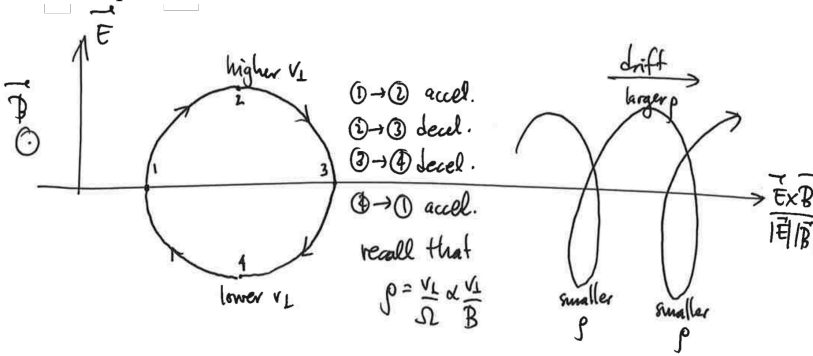 E⃗
B⃗
higher v⊥
2
1
3
4
lower v⊥
①→② accel.
②→③ decel.
③→④ decel.
④→① accel.
recall that
ρ = v⊥/Ω ∝ v⊥/B
drift
larger ρ
smaller ρ
smaller ρ
E⃗×B⃗/|E⃗||B⃗|